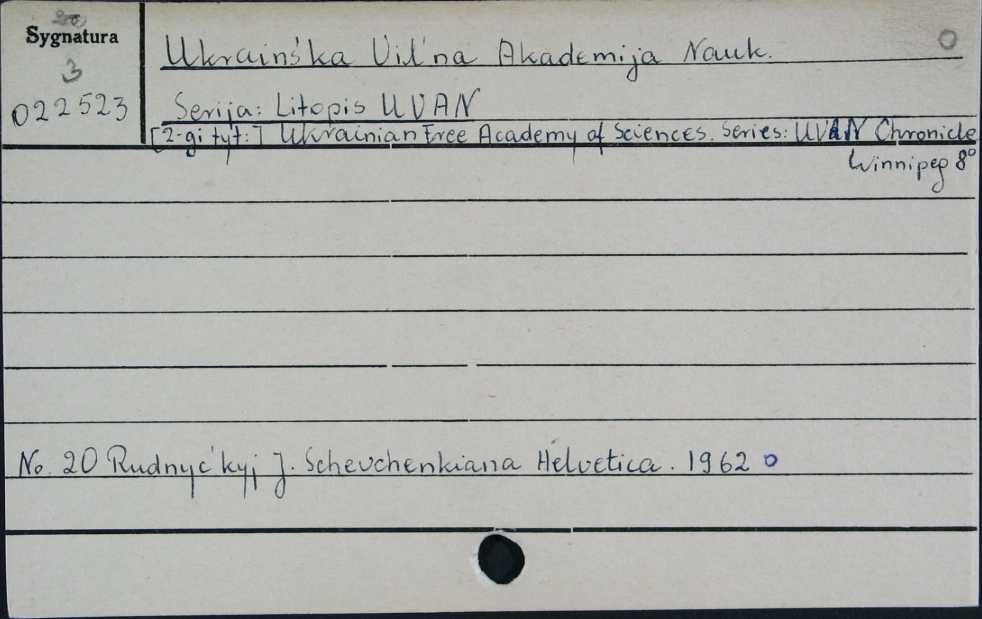 Sygnatura
3
022523
Ukrains'ka Vil'na Akademija Nauk.
Serija: Litopis UVAN
[2-gi tyt:] Ukrainian Free Academy of Sciences. Series: UVAN Chronicle
Winnipeg 8°
No. 20 Rudnyc'kyj J. Schevchenkiana Helvetica. 1962 o